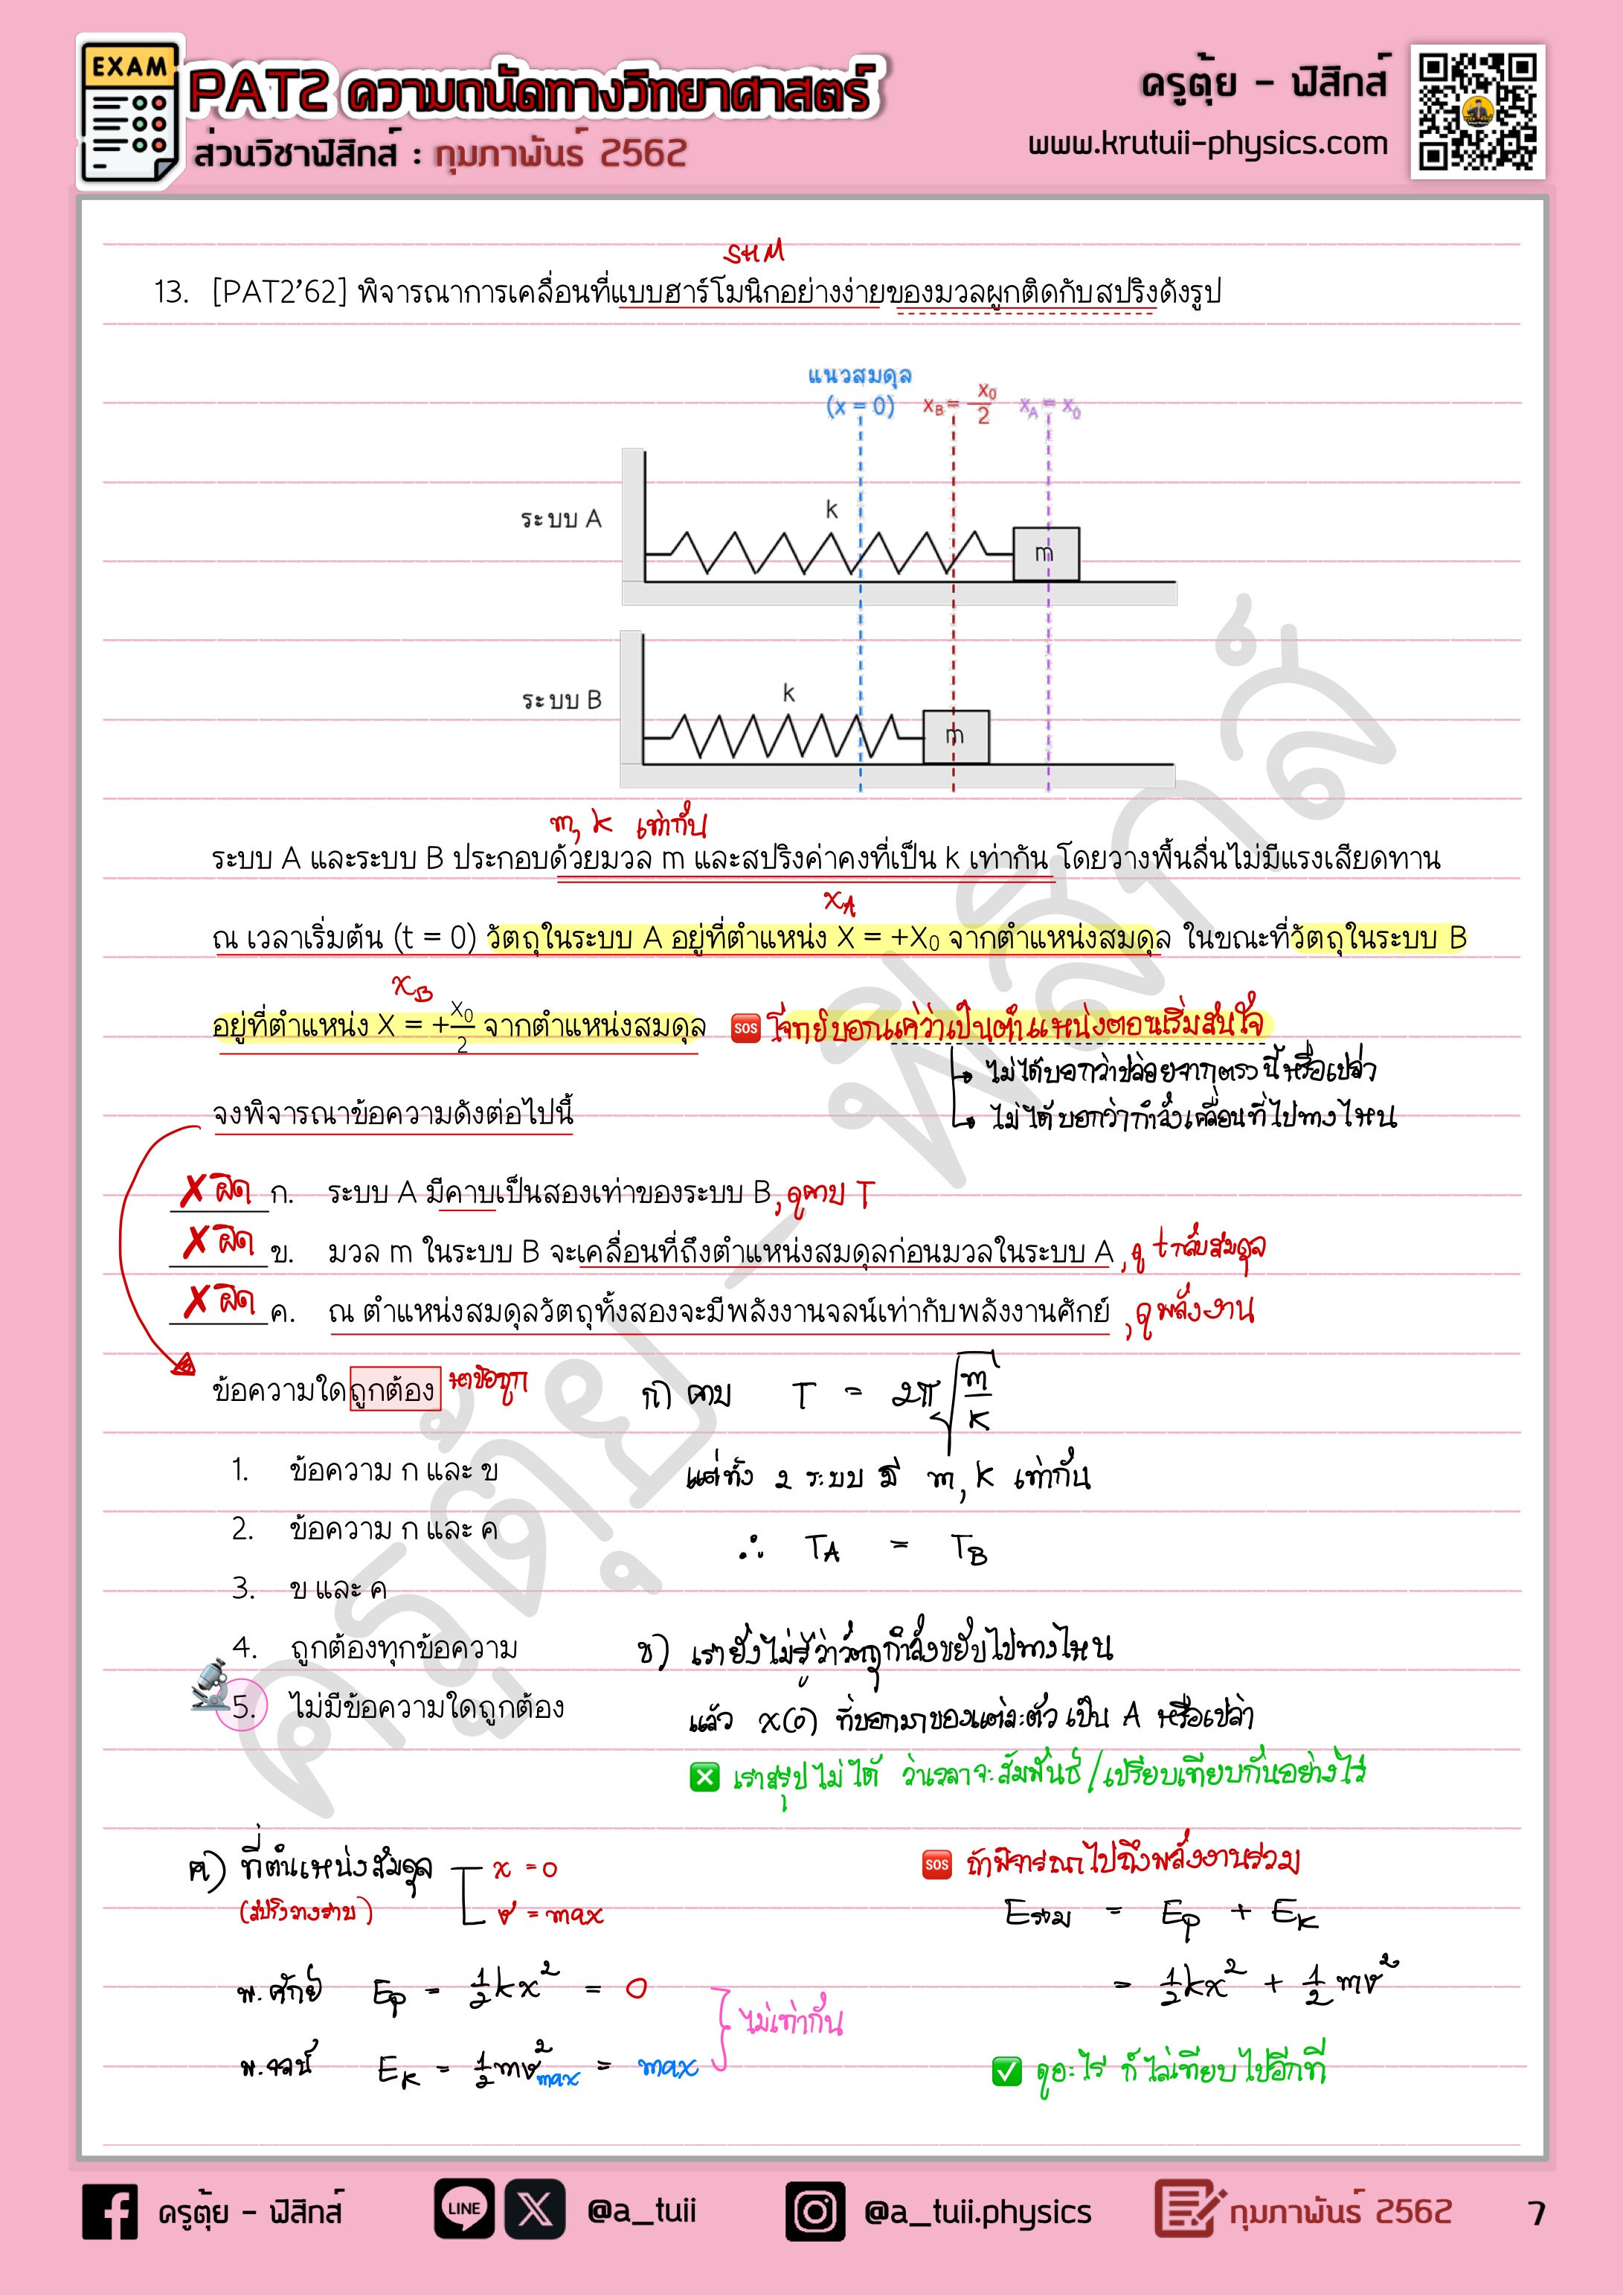 EXAM
PAT2 ความถนัดทางวิทยาศาสตร์
ส่วนวิชาฟิสิกส์ : กุมภาพันธ์ 2562
ครูตุ้ย - ฟิสิกส์
www.krutuii-physics.com
SHM
13. [PAT2'62] พิจารณาการเคลื่อนที่แบบฮาร์โมนิกอย่างง่ายของมวลผูกติดกับสปริงดังรูป
แนวสมดุล
(x = 0) xB = x0/2 xA = x0
ระบบ A
k
m
ระบบ B
k
m
m, k เท่ากัน
ระบบ A และระบบ B ประกอบด้วยมวล m และสปริงค่าคงที่เป็น k เท่ากัน โดยวางพื้นลื่นไม่มีแรงเสียดทาน
xA
ณ เวลาเริ่มต้น (t = 0) วัตถุในระบบ A อยู่ที่ตำแหน่ง X = +X0 จากตำแหน่งสมดุล ในขณะที่วัตถุในระบบ B
xB
อยู่ที่ตำแหน่ง X = +X0/2 จากตำแหน่งสมดุล SOS โจทย์บอกแค่ว่าเป็นตำแหน่งตอนเริ่มสนใจ
ไม่ได้บอกว่าปล่อยจากตรงนี้หรือเปล่า
จงพิจารณาข้อความดังต่อไปนี้
ไม่ได้บอกว่ากำลังเคลื่อนที่ไปทางไหน
✗ ผิด ก. ระบบ A มีคาบเป็นสองเท่าของระบบ B, ดูคาบ T
✗ ผิด ข. มวล m ในระบบ B จะเคลื่อนที่ถึงตำแหน่งสมดุลก่อนมวลในระบบ A, ดู t กลับสมดุล
✗ ผิด ค. ณ ตำแหน่งสมดุลวัตถุทั้งสองจะมีพลังงานจลน์เท่ากับพลังงานศักย์, ดูพลังงาน
ข้อความใดถูกต้อง หาข้อถูก
ก) คาบ T = 2π√(m/k)
1. ข้อความ ก และ ข
แต่ทั้ง 2 ระบบ มี m, k เท่ากัน
2. ข้อความ ก และ ค
∴ TA = TB
3. ข และ ค
4. ถูกต้องทุกข้อความ
ข) เรายังไม่รู้ว่าวัตถุกำลังขยับไปทางไหน
5. ไม่มีข้อความใดถูกต้อง
แล้ว x(0) ที่บอกมาของแต่ละตัว เป็น A หรือเปล่า
❎ เราสรุปไม่ได้ ว่าเวลาจะสัมพันธ์/เปรียบเทียบกันอย่างไร
ค) ที่ตำแหน่งสมดุล x = 0
(สปริงวางราบ) v = max
พ.ศักย์ Ep = ½kx² = 0
พ.จลน์ EK = ½mv²max = max
ไม่เท่ากัน
SOS ถ้าพิจารณาไปถึงพลังงานรวม
Eรวม = Ep + EK
= ½kx² + ½mv²
✅ ดูอะไร ก็ไล่เทียบไปอีกที
ครูตุ้ย - ฟิสิกส์
ครูตุ้ย - ฟิสิกส์
LINE X @a_tuii
@a_tuii.physics
กุมภาพันธ์ 2562
7